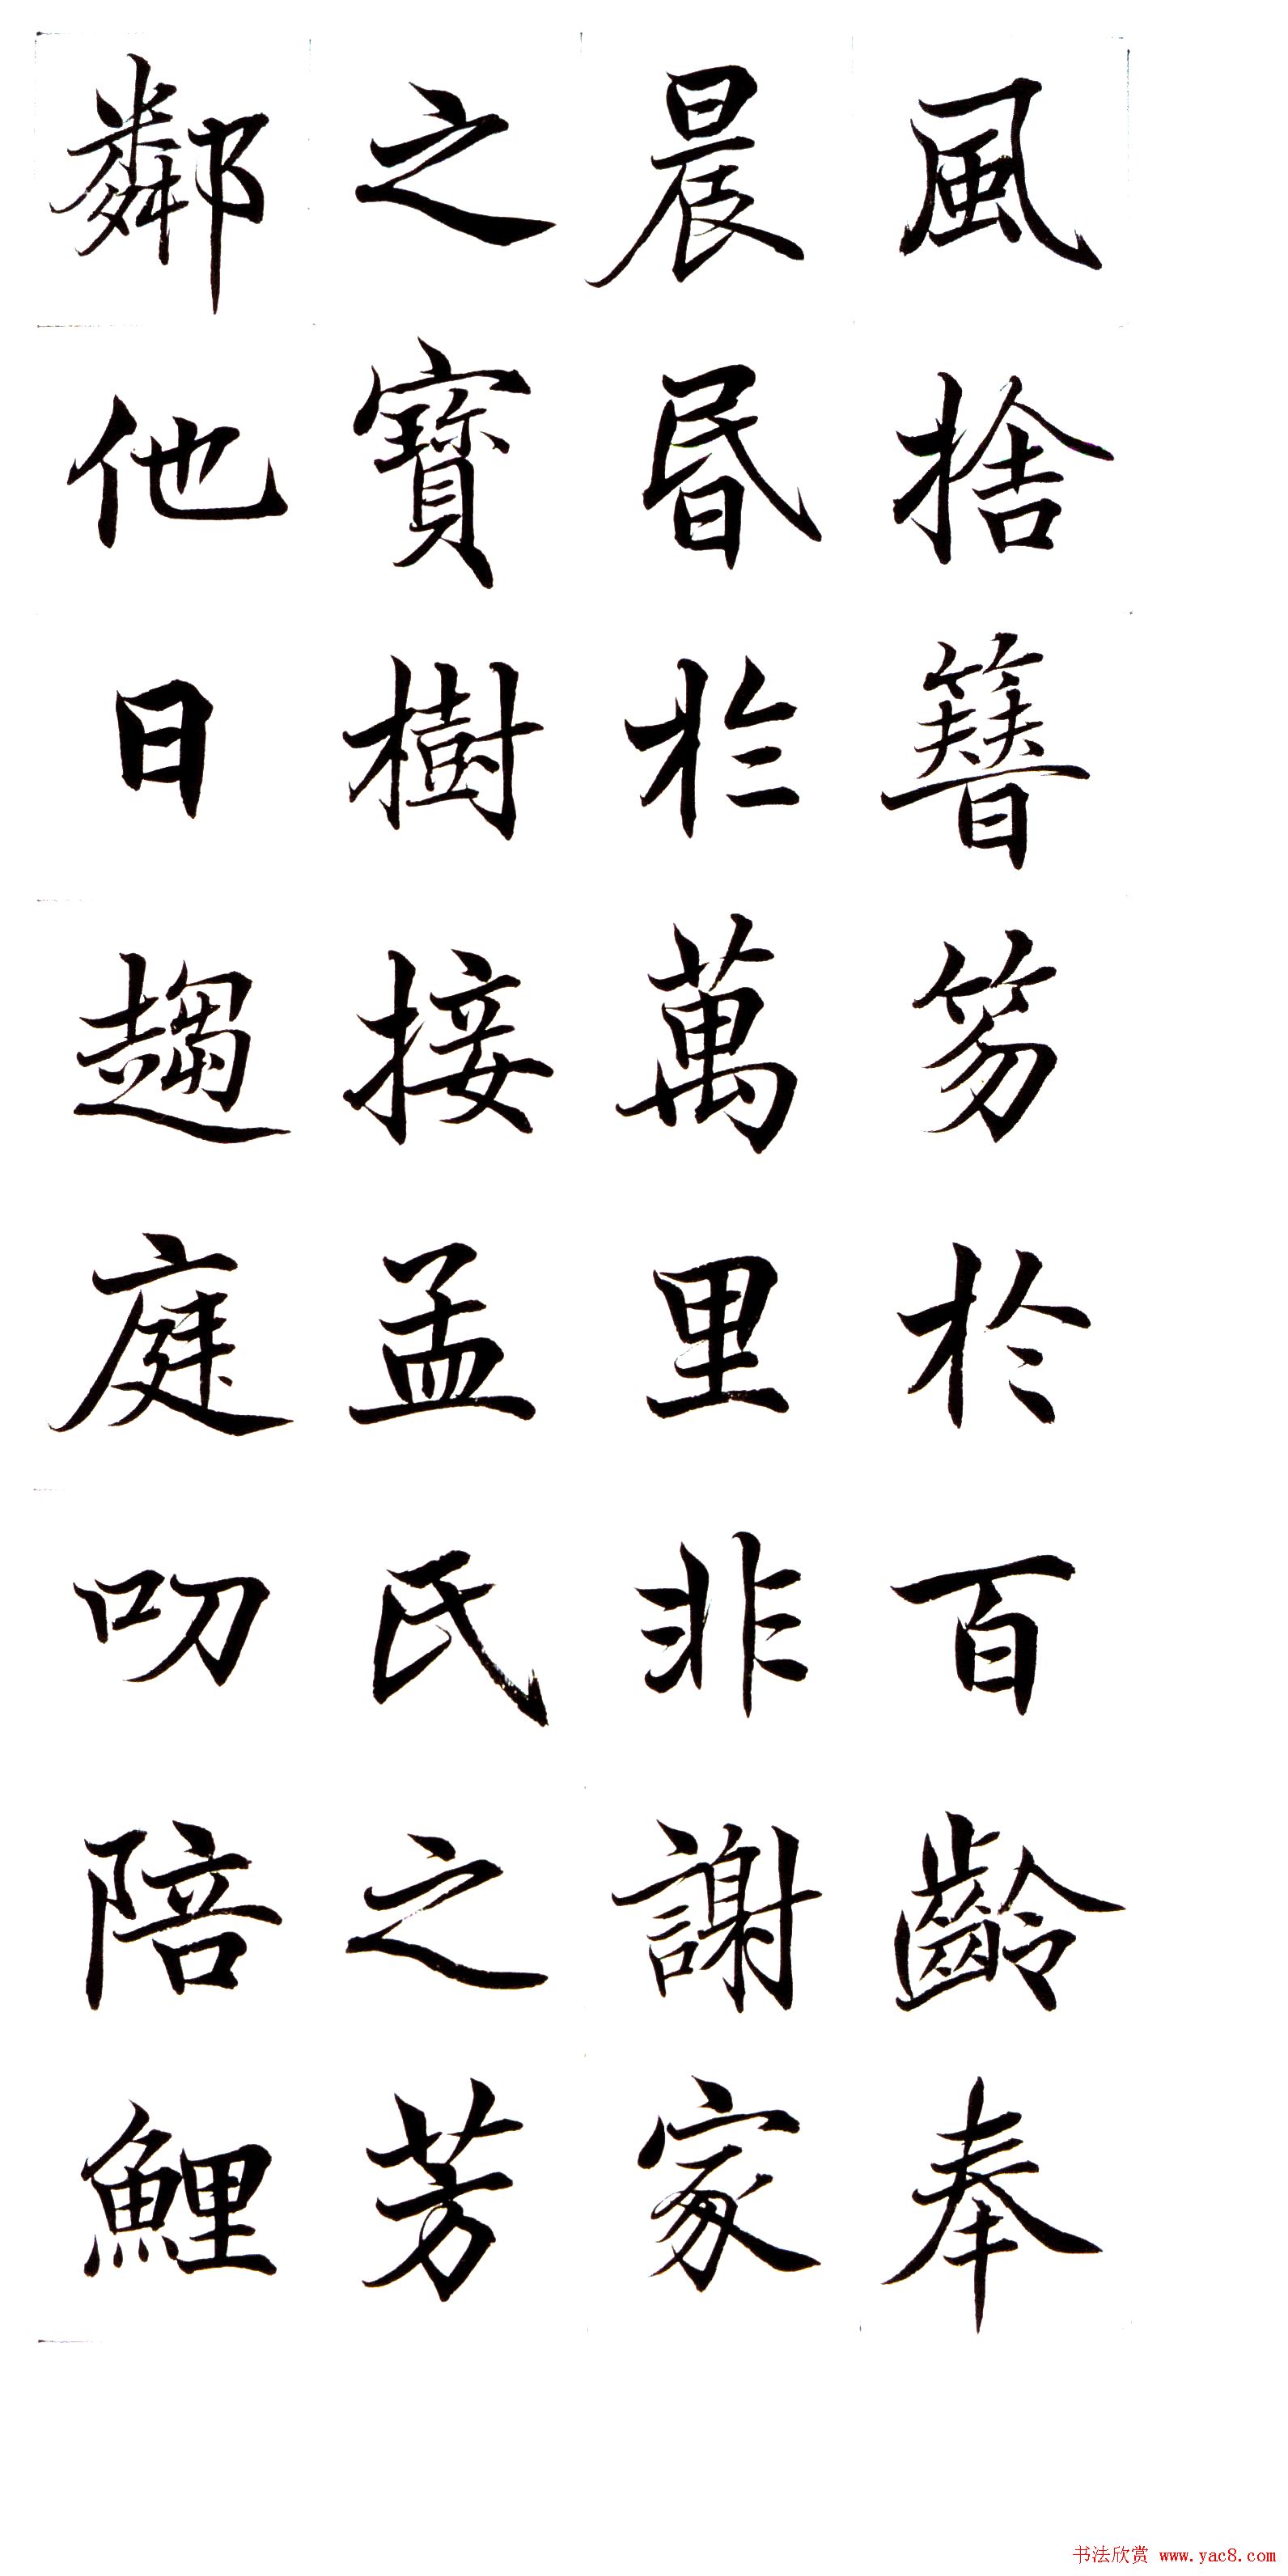 風捨簪笏於百齡奉
晨昏於萬里非謝家
之寶樹接孟氏之芳
鄰他日趨庭叨陪鯉
书法欣赏 www.yac8.com